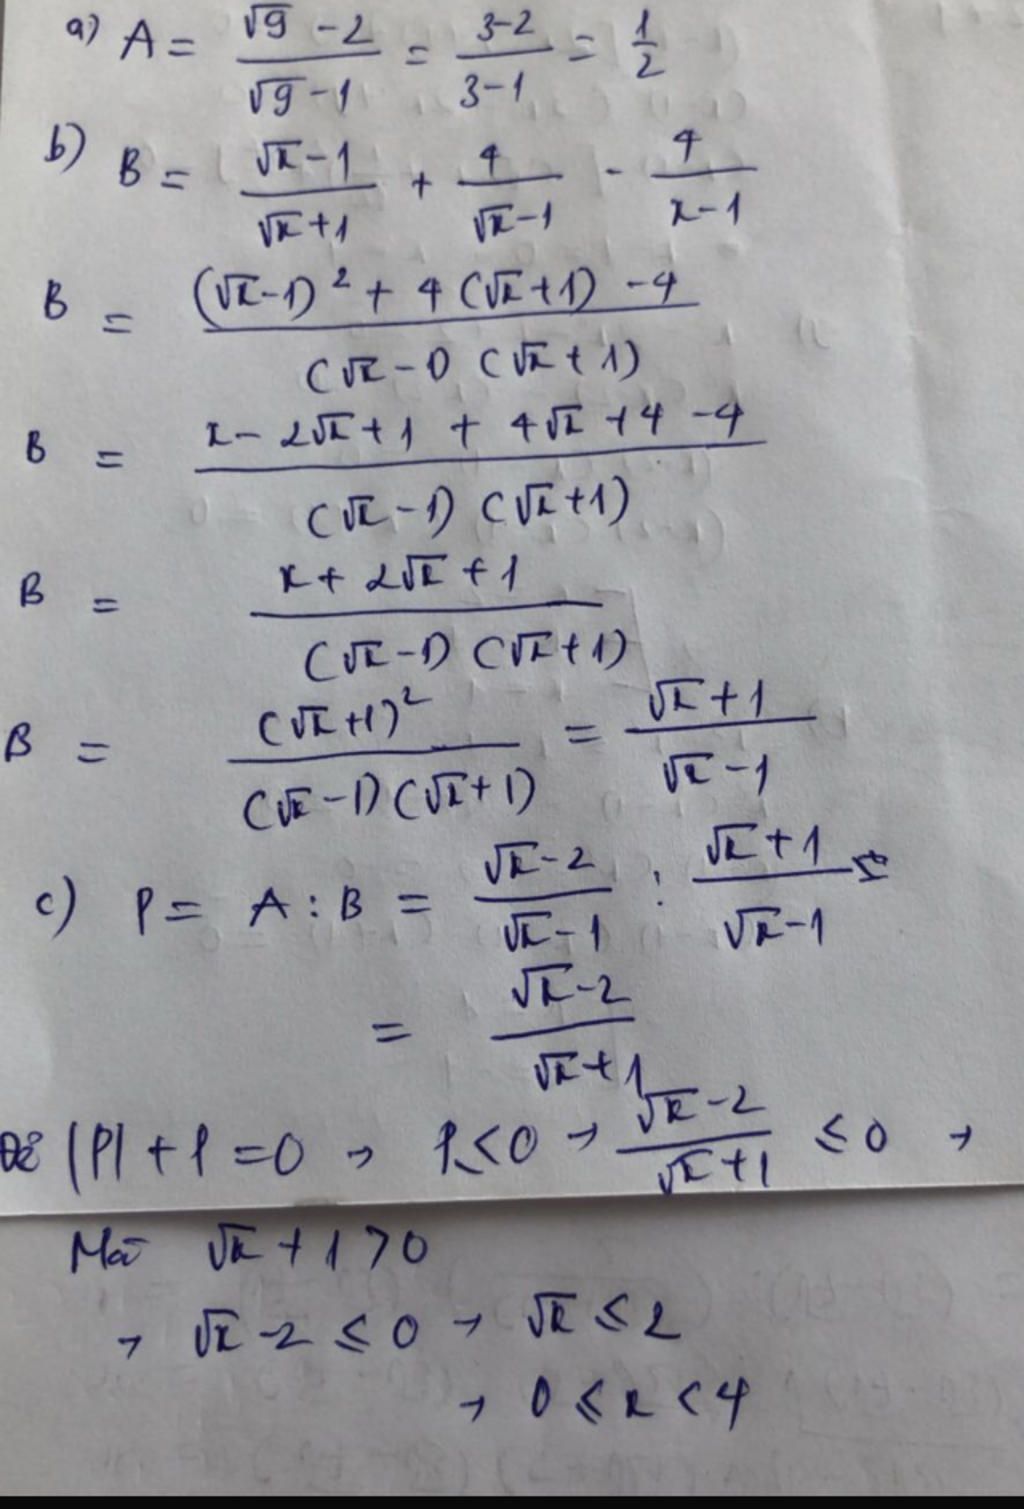 a) A = (√9 - 2)/(√9 - 1) = (3-2)/(3-1) = 1/2
b) B = (√x - 1)/(√x + 1) + 4/(√x - 1) - 4/(x - 1)
B = ((√x - 1)² + 4(√x + 1) - 4)/((√x - 1)(√x + 1))
B = (x - 2√x + 1 + 4√x + 4 - 4)/((√x - 1)(√x + 1))
B = (x + 2√x + 1)/((√x - 1)(√x + 1))
B = (√x + 1)²/((√x - 1)(√x + 1)) = (√x + 1)/(√x - 1)
c) P = A : B = (√x - 2)/(√x - 1) : (√x + 1)/(√x - 1)
= (√x - 2)/(√x + 1)
Để |P| + P = 0 → P ≤ 0 → (√x - 2)/(√x + 1) ≤ 0 →
Mà √x + 1 > 0
→ √x - 2 ≤ 0 → √x ≤ 2
→ 0 ≤ x < 4